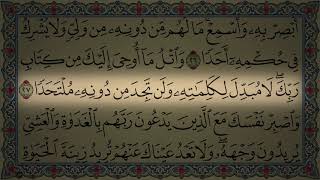 أَبْصِرْ بِهِۦ وَأَسْمِعْ مَا لَهُم مِّن دُونِهِۦ مِن وَلِىٍّ وَلَا يُشْرِكُ
فِى حُكْمِهِۦٓ أَحَدًا ٢٦ وَٱتْلُ مَآ أُوحِىَ إِلَيْكَ مِن كِتَابِ
رَبِّكَ لَا مُبَدِّلَ لِكَلِمَـٰتِهِۦ وَلَن تَجِدَ مِن دُونِهِۦ مُلْتَحَدًا ٢٧
وَٱصْبِرْ نَفْسَكَ مَعَ ٱلَّذِينَ يَدْعُونَ رَبَّهُم بِٱلْغَدَوٰةِ وَٱلْعَشِىِّ
يُرِيدُونَ وَجْهَهُۥ وَلَا تَعْدُ عَيْنَاكَ عَنْهُمْ تُرِيدُ زِينَةَ ٱلْحَيَوٰةِ